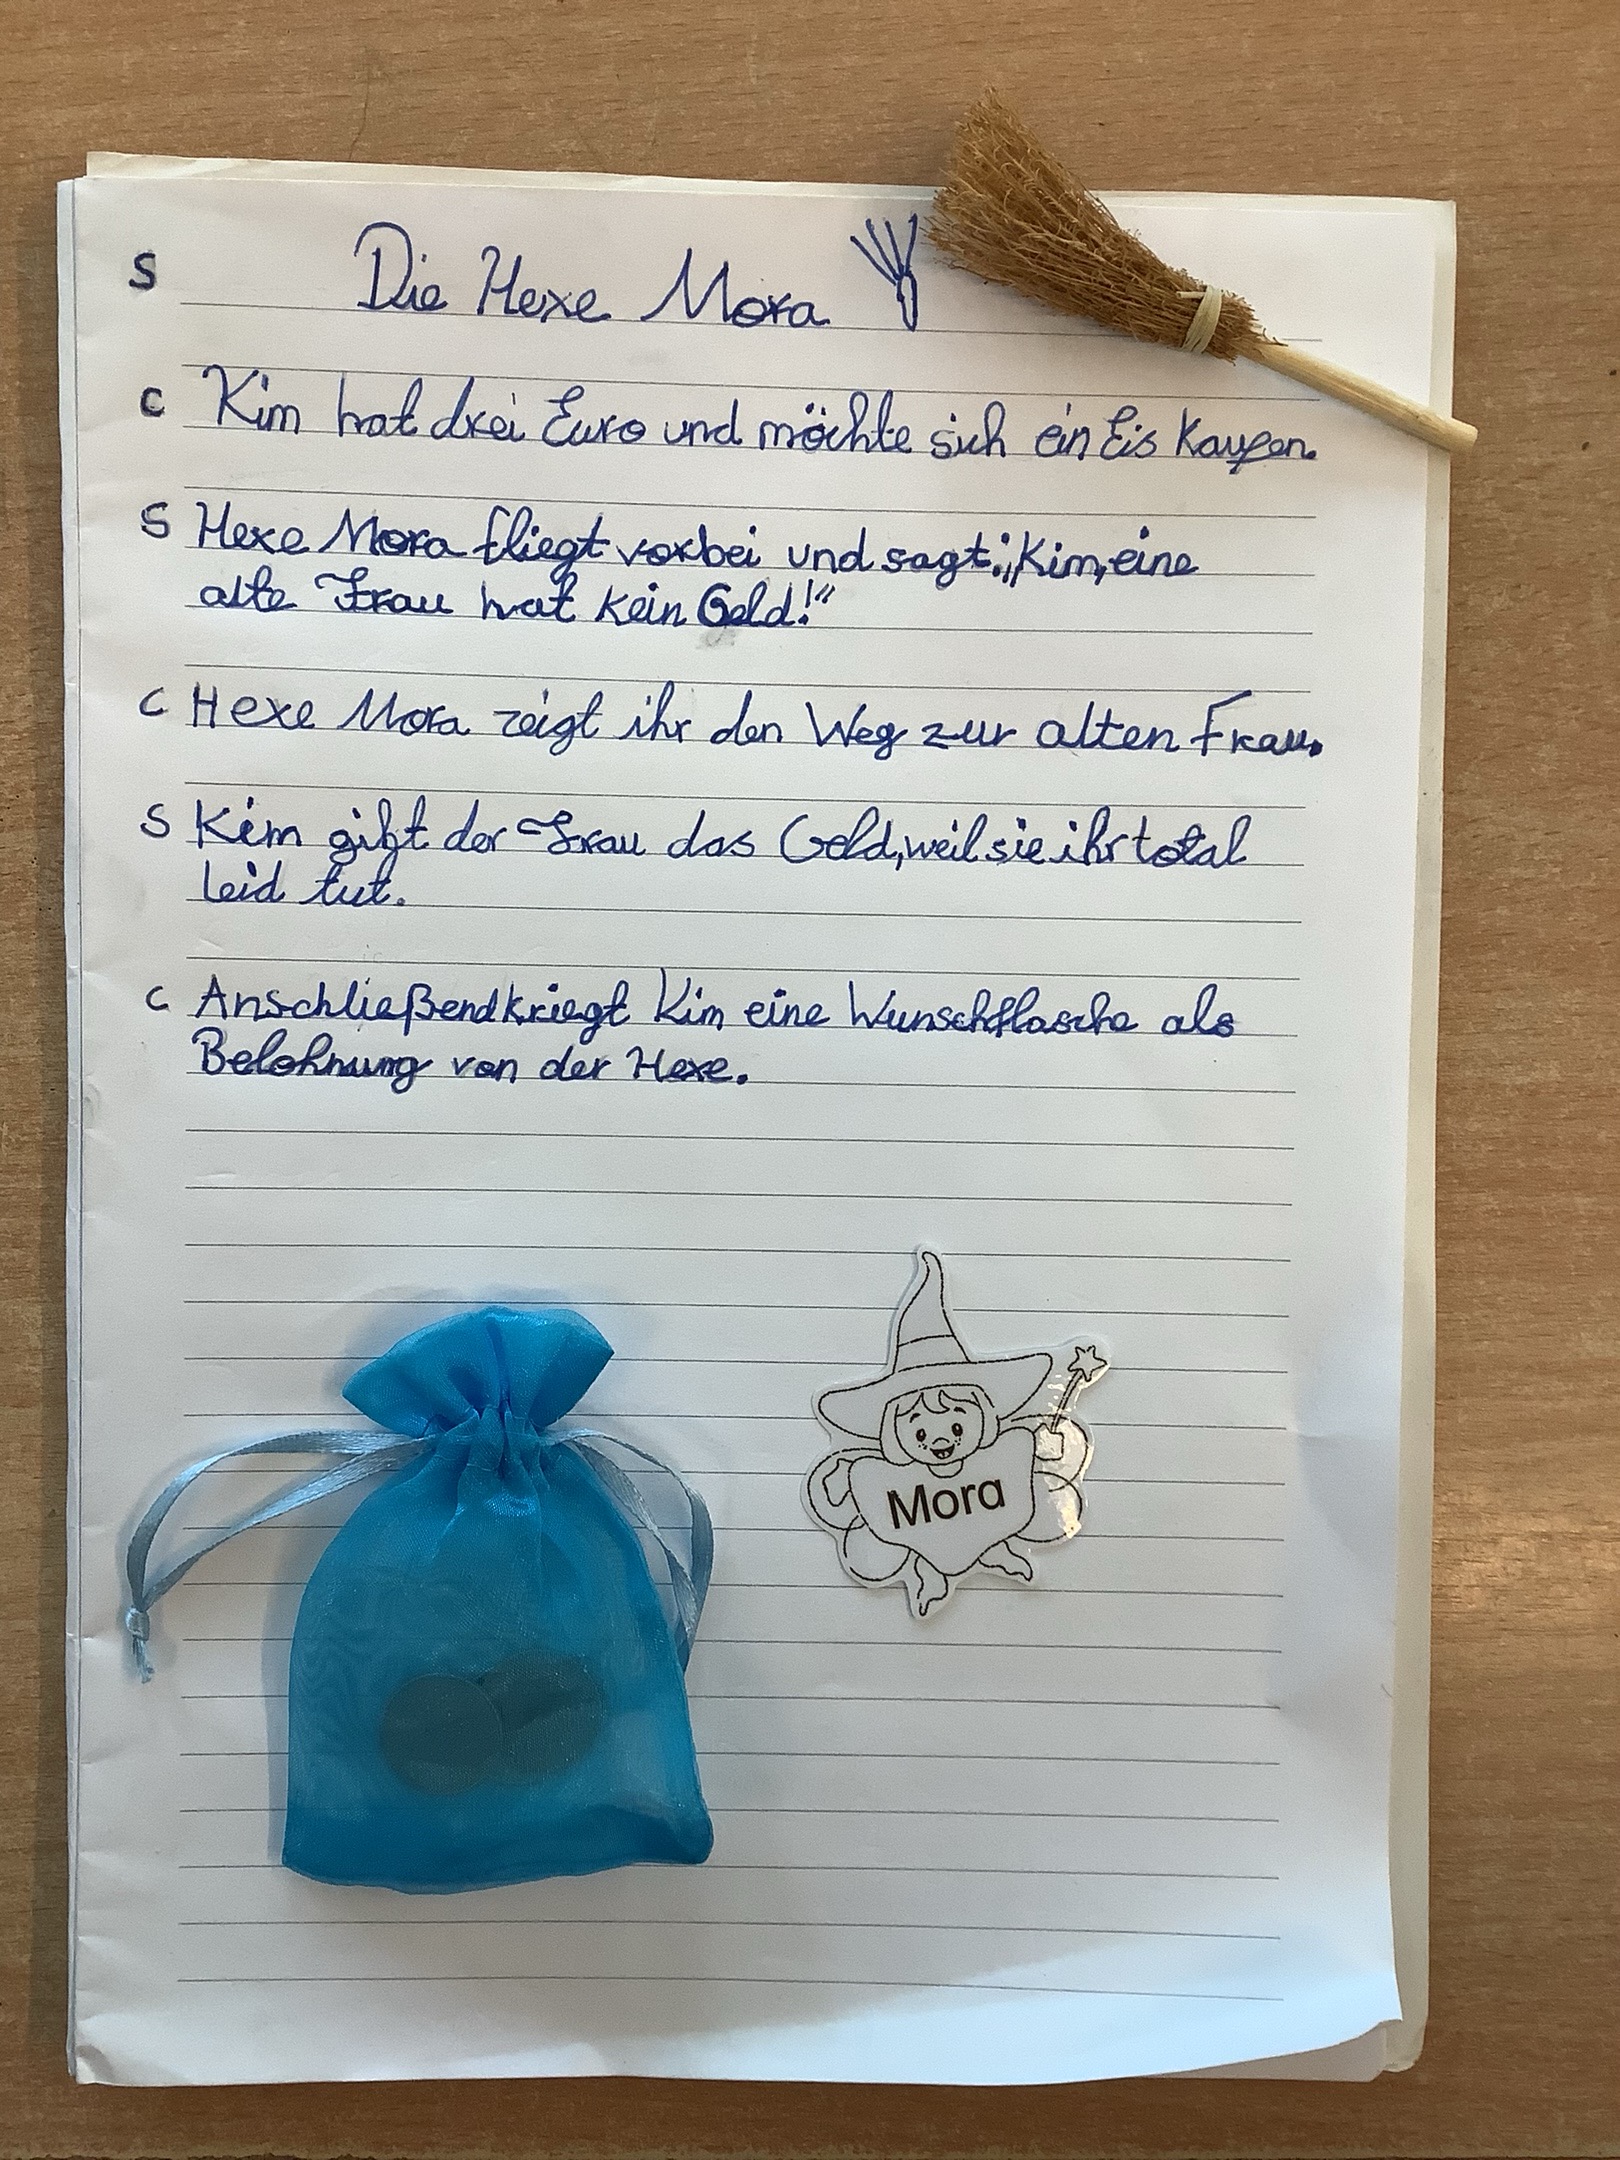 S Die Hexe Mora
C Kim hat drei Euro und möchte sich ein Eis kaufen.
S Hexe Mora fliegt vorbei und sagt: „Kim, eine
alte Frau hat kein Geld!“
C Hexe Mora zeigt ihr den Weg zur alten Frau.
S Kim gibt der Frau das Geld, weil sie ihr total
Leid tut.
C Anschließend kriegt Kim eine Wunschflasche als
Belohnung von der Hexe.
Mora